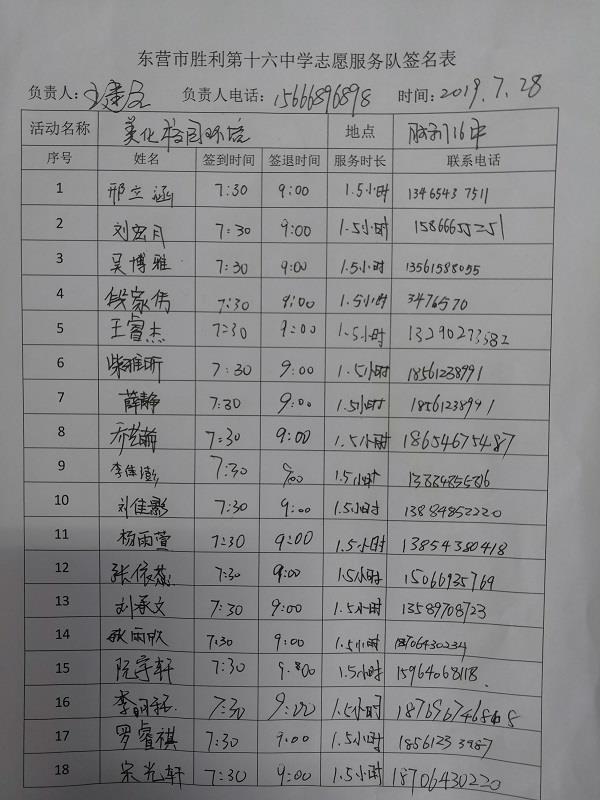 东营市胜利第十六中学志愿服务队签名表
负责人: 负责人电话: 15666896898 时间: 2019.7.28
活动名称 美化校园环境 地点 胜利16中
序号 姓名 签到时间 签退时间 服务时长 联系电话
1 邢立涵 7:30 9:00 1.5小时 13465437511
2 刘宏月 7:30 9:00 1.5小时 15866655251
3 吴博雅 7:30 9:00 1.5小时 13561588055
4 段家伟 7:30 9:00 1.5小时 3476570
5 王睿杰 7:30 9:00 1.5小时 13290273582
6 柴雅昕 7:30 9:00 1.5小时 18561238991
7 薛静 7:30 9:00 1.5小时 18561238991
8 7:30 9:00 1.5小时 18654675487
9 李佳澎 7:30 9:00 1.5小时
10 刘佳影 7:30 9:00 1.5小时 13884852220
11 杨雨萱 7:30 9:00 1.5小时 13854380418
12 张依蕊 7:30 9:00 1.5小时 15066935769
13 刘承文 7:30 9:00 1.5小时 13589708723
14 7:30 9:00 1.5小时
15 阮宇轩 7:30 9:00 1.5小时 15964068118
16 7:30 9:00 1.5小时
17 罗睿祺 7:30 9:00 1.5小时 18561233987
18 宋光轩 7:30 9:00 1.5小时 18706430220